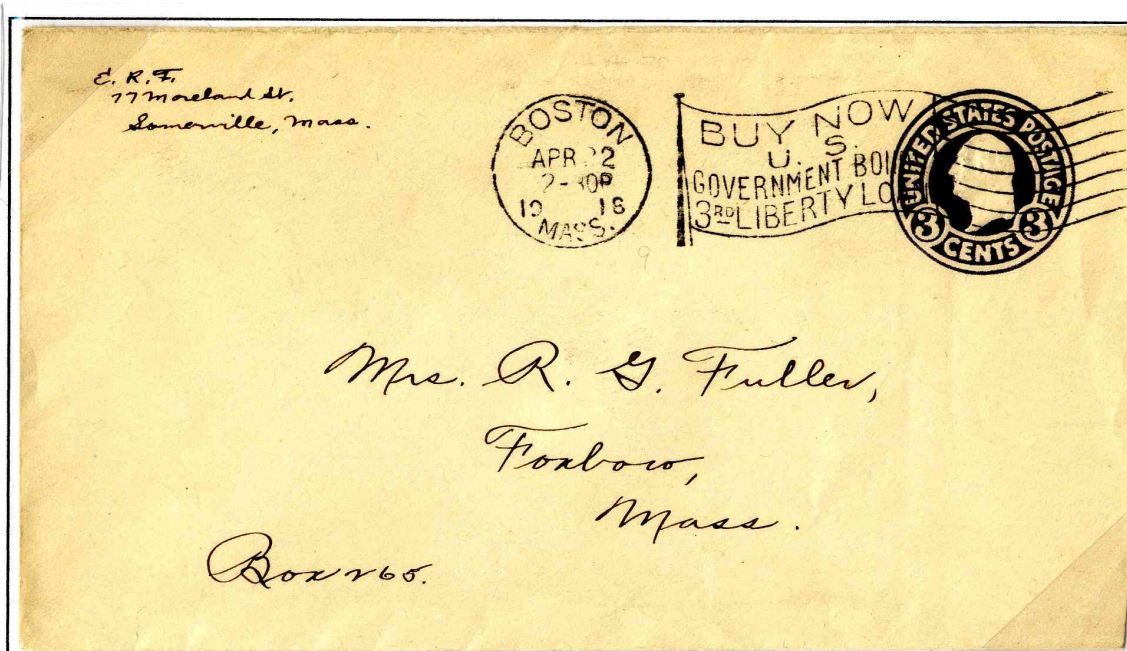 E. R. F.
77 Moreland St.
Somerville, Mass.
BOSTON
APR 22
2-30P
19 18
MASS.
BUY NOW
U. S.
GOVERNMENT BO
3RD LIBERTY LO
UNITED STATES POSTAGE
3 CENTS 3
9
Mrs. R. G. Fuller,
Foxboro,
Mass.
Box 265.